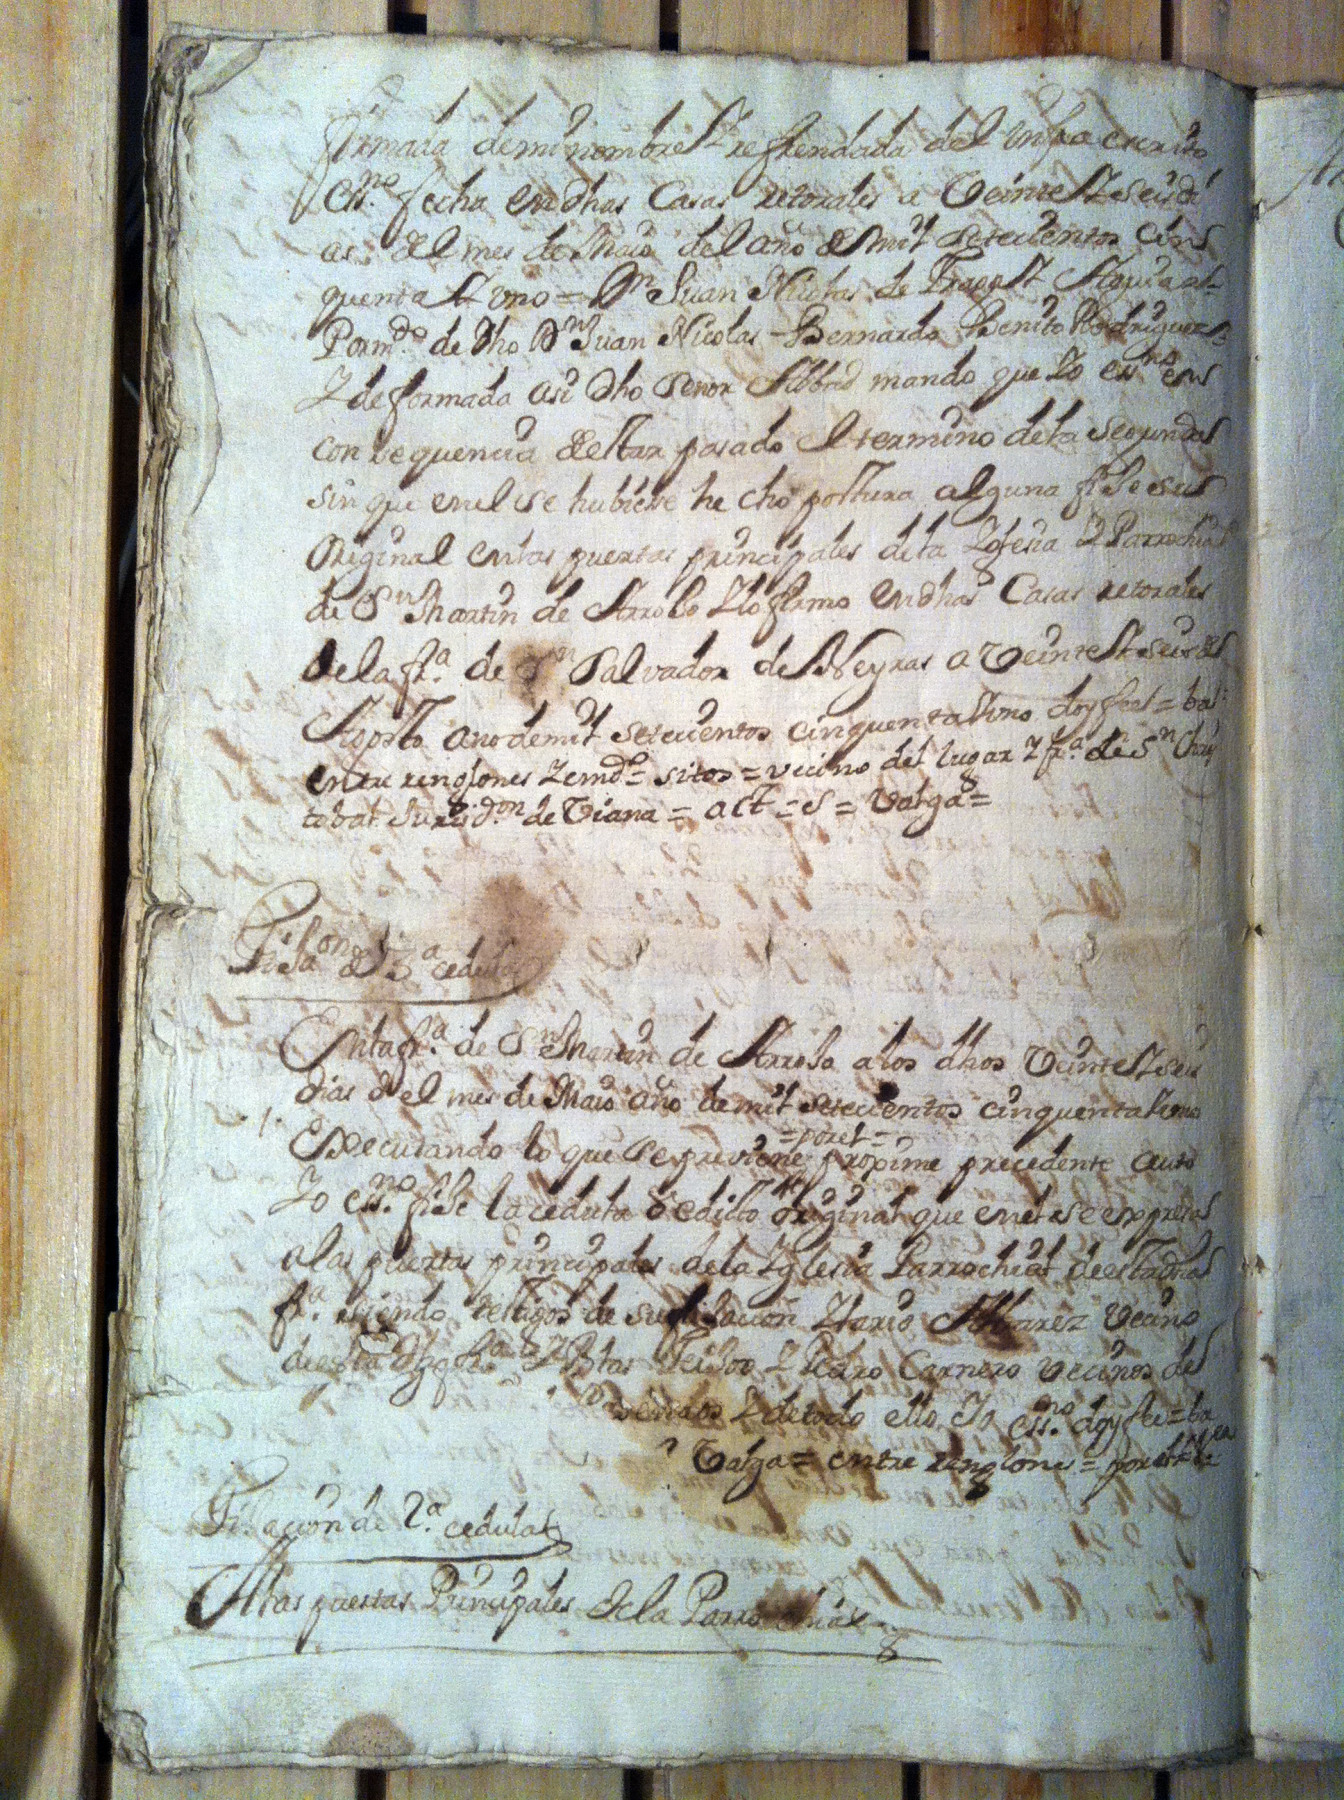 firmada de mi nombre Y refrendada del Infra escrito
ess.no fecha en dhas Casas retorales a Veinte Y seis di
as del mes de Maio del año de mil setecientos cin
quenta Y uno = Dn Juan Nicolas de
Por m.do de dho Dn Juan Nicolas = Bernardo Benito Rodriguez =
Y de formada asi dho señor Abbad mando que Yo ess.no en
consequencia de estar pasado el termino de la segunda
sin que en el se hubiese hecho postura alguna fije su
Original en las puertas principales de la Yglesia Parrochial
de Sn Martin de Arrojo Y lo firmo en dhas Casas retorales
de la fr.a de Sn Salvador de Neyras a Veinte Y seis de
Agosto año de mil setecientos cinquenta Y uno doy fee = ba
entre renglones Y emd.o = sitos = vecino del lugar Y fr.a de Sn
tobal Jurisd.on de Viana = act = s = Valga =
Fija.on de 3.a cedula
En la fr.a de Sn Martin de Arrojo a los dhos Veinte Y seis
dias del mes de Maio año de mil setecientos cinquenta Y uno
= por el =
Executando lo que se previene proxime precedente auto
Yo ess.no fije la cedula o edicto original que en el se expresa
a las puertas principales de la Yglesia Parrochial de esta dha
fr.a siendo testigos de su fijacion Ylario Albarez vecino
de esta dha fr.a Y Blas Y Pedro Carnero vecinos de
Y de todo ello Yo ess.no doy fee = ba
Valga = entre renglones = por el =
Fijacion de 2.a cedula
A las puertas Principales de la Parrochial